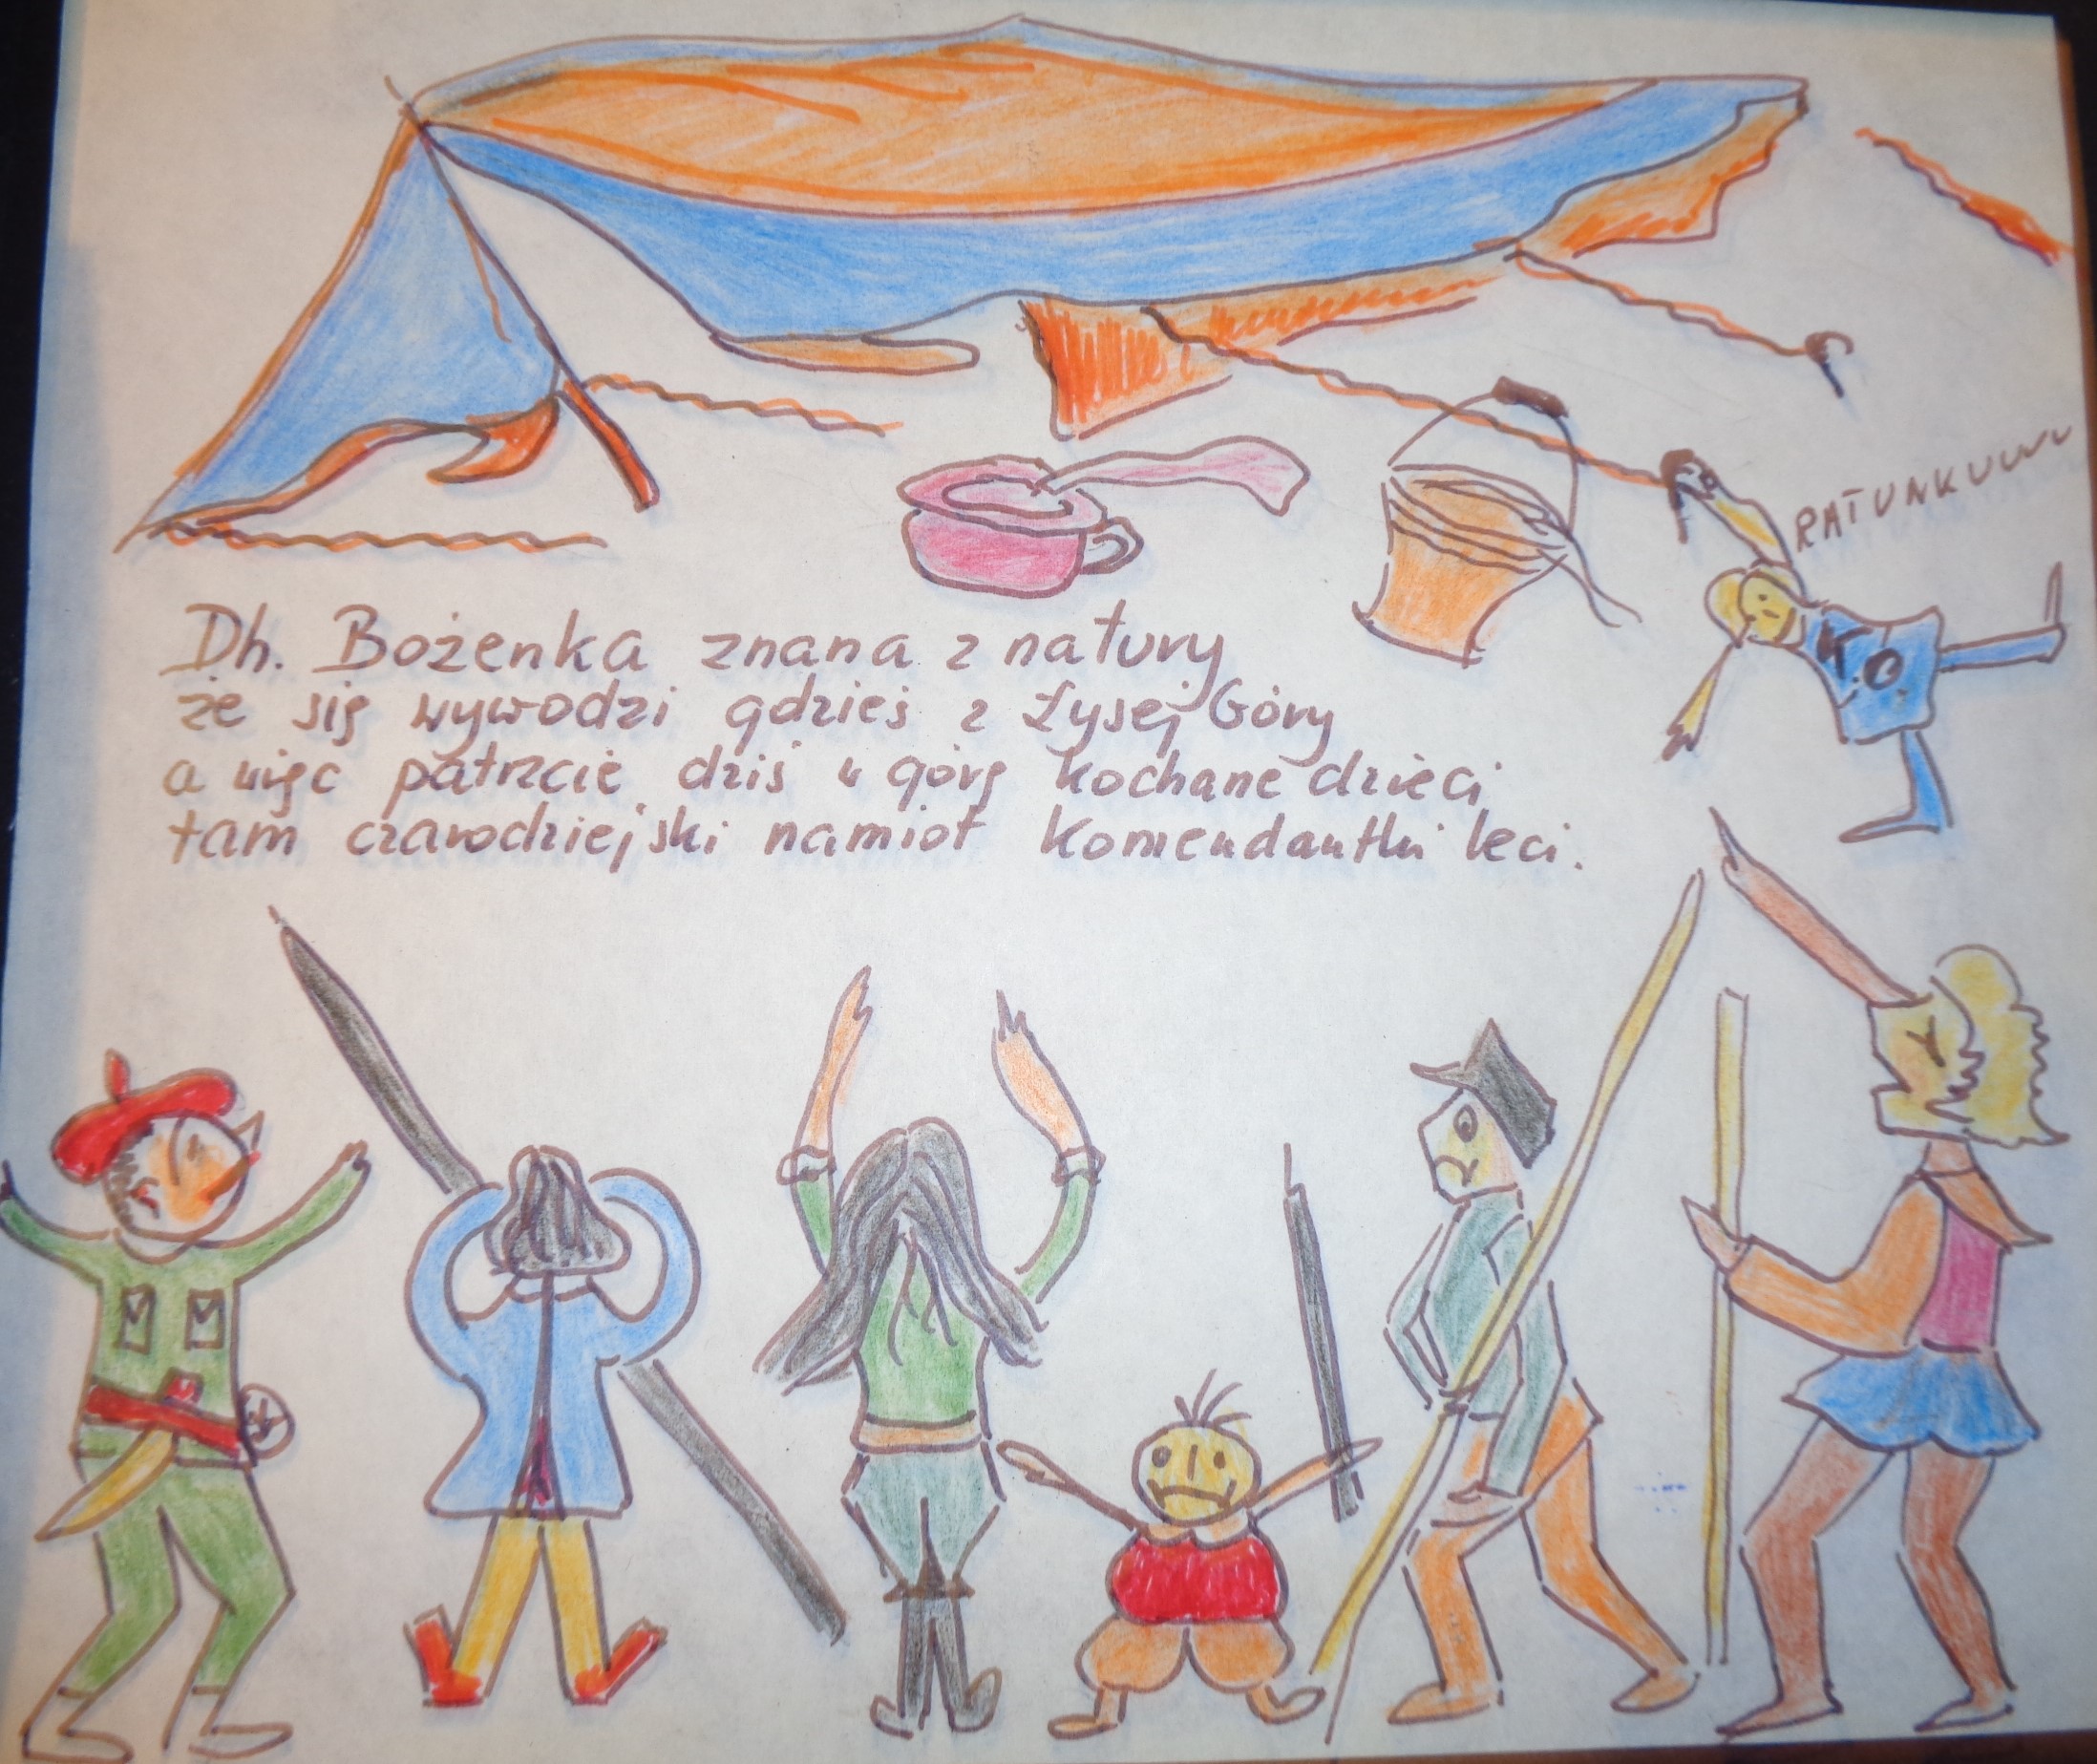 RATUNKUUUU
K.O.
Dh. Bożenka znana z natury
że się wywodzi gdzieś z Łysej Góry
a więc patrzcie dziś w górę kochane dzieci
tam czarodziejski namiot komendantki leci.